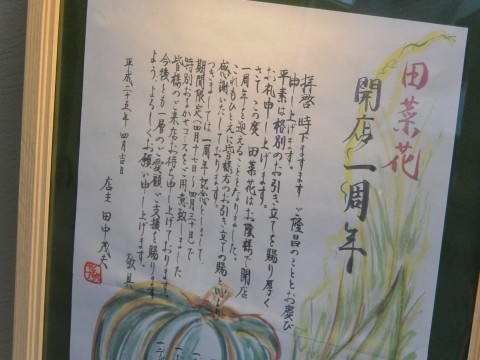 田菜花
開店一周年
拝啓 時下ますます ご隆昌のこととお慶び
申し上げます。
平素は格別のお引き立てを賜り厚く
お礼申し上げます。
さて この度、田菜花はお陰様で開店
一周年を迎えることとなりました。
これもひとえに皆様方のお引き立ての賜と心より
感謝いたしております。
つきましては一周年記念としまして、
期間限定(四月十七日〜四月三十日)で
特別おまかせコースをご用意致しました
皆様のご来店お待ち申し上げております。
今後とも一層のご愛顧ご支援を賜ります
よう、よろしくお願い申し上げます。
敬具
平成二十五年 四月吉日
店主 田中茂夫